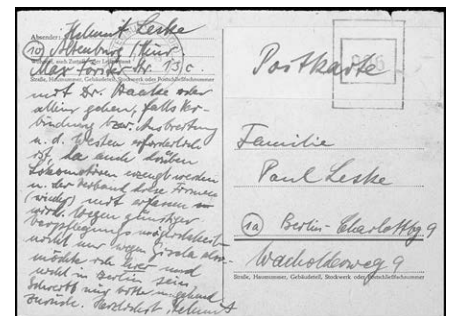 Absender: Helmut Leske
(10) Altenburg / Thür.
Wohnort, auch Zustell- oder Leitpostamt
Max Förster Str. 13 c.
Straße, Hausnummer, Gebäudeteil, Stockwerk oder Postschließfachnummer
mit Dr. Baatke oder
allein gehen, falls Ver-
bindung bzw. Ausbreitung
n. d. Westen erforderlich
ist, da auch drüben
Lokomotiven erzeugt werden
u. der Verband diese Firmen
(wieder) mit erfassen
wird. Wegen günstiger
Verpflegungsmöglichkeiten
nicht nur wegen Gisela also
möchte ich hier und
nicht in Berlin sein
Schreibt mir bitte umgehend
zurück. Herzlichst Helmut
Postkarte
Familie
Paul Leske
(1a) Berlin-Charlottbg 9
Wacholderweg 9
Straße, Hausnummer, Gebäudeteil, Stockwerk oder Postschließfachnummer